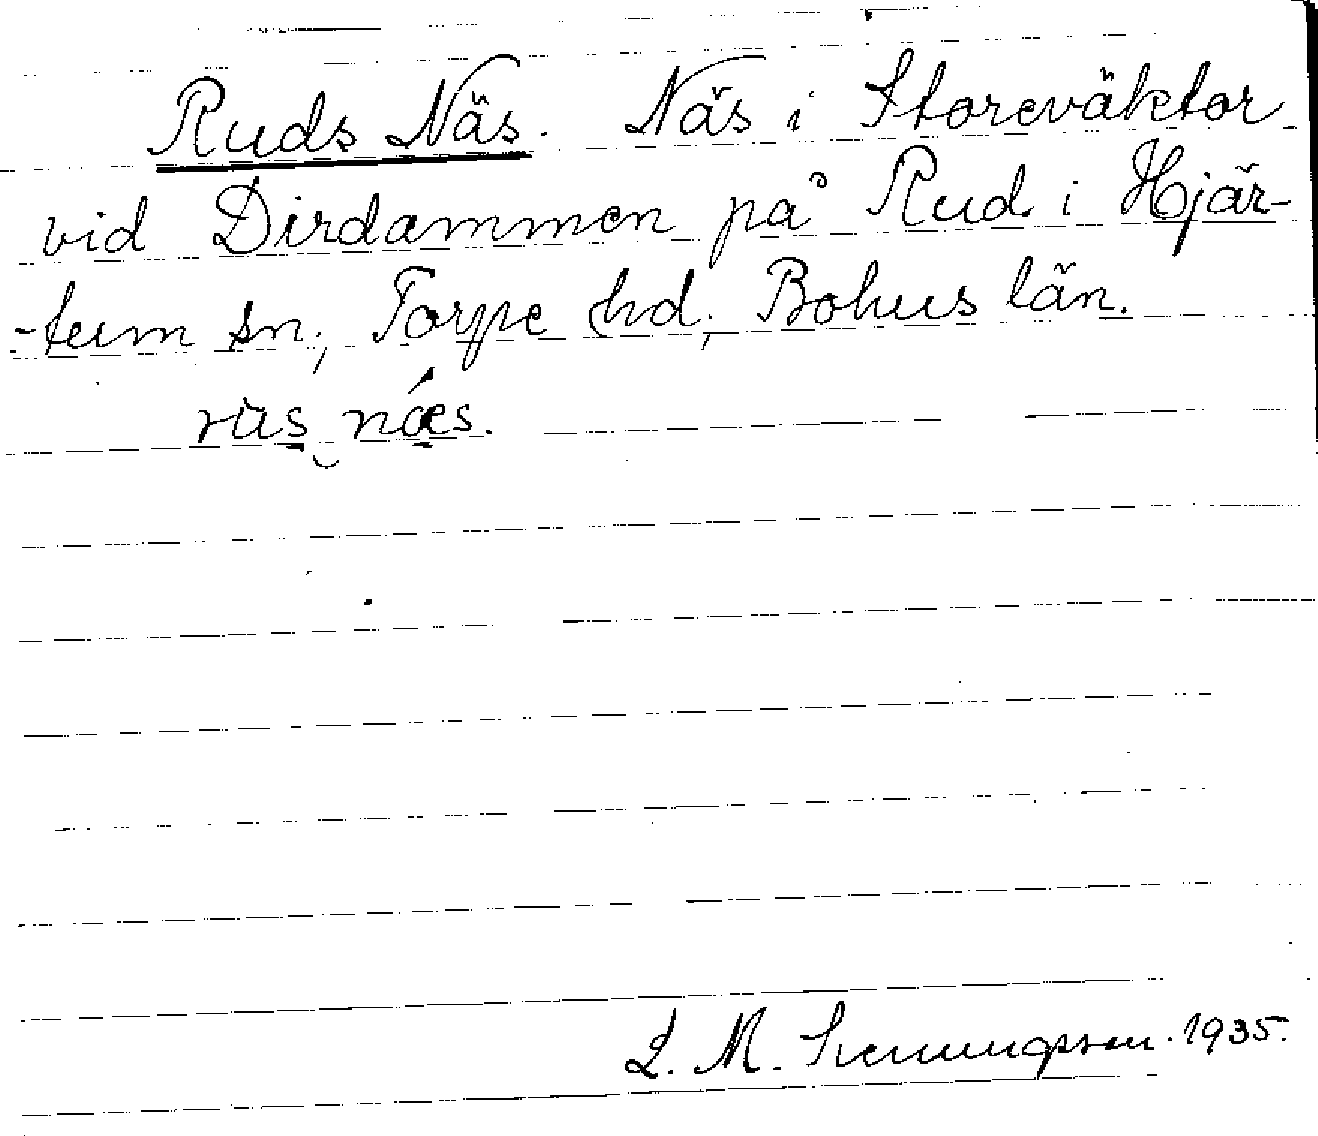 Ruds Näs. Näs i Storeväktor
vid Dirdammen på Rud i Hjär-
-tum sn; Torpe hd; Bohus län.
rus näs.
L. M. 1935.